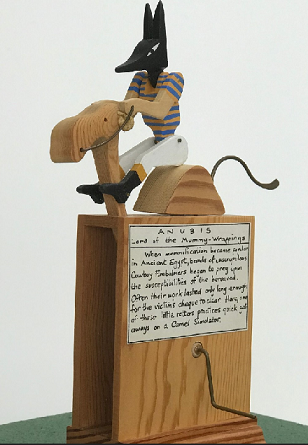 ANUBIS
Lord of the Mummy-Wrappings
When mummification became popular
in Ancient Egypt, bands of unscrupulous
Cowboy Embalmers began to prey upon
the susceptibilities of the bereaved.
Often their work lasted only long enough
for the victims cheque to clear. Here, one
of these little retors practices quick get-
aways on a Camel Simulator.